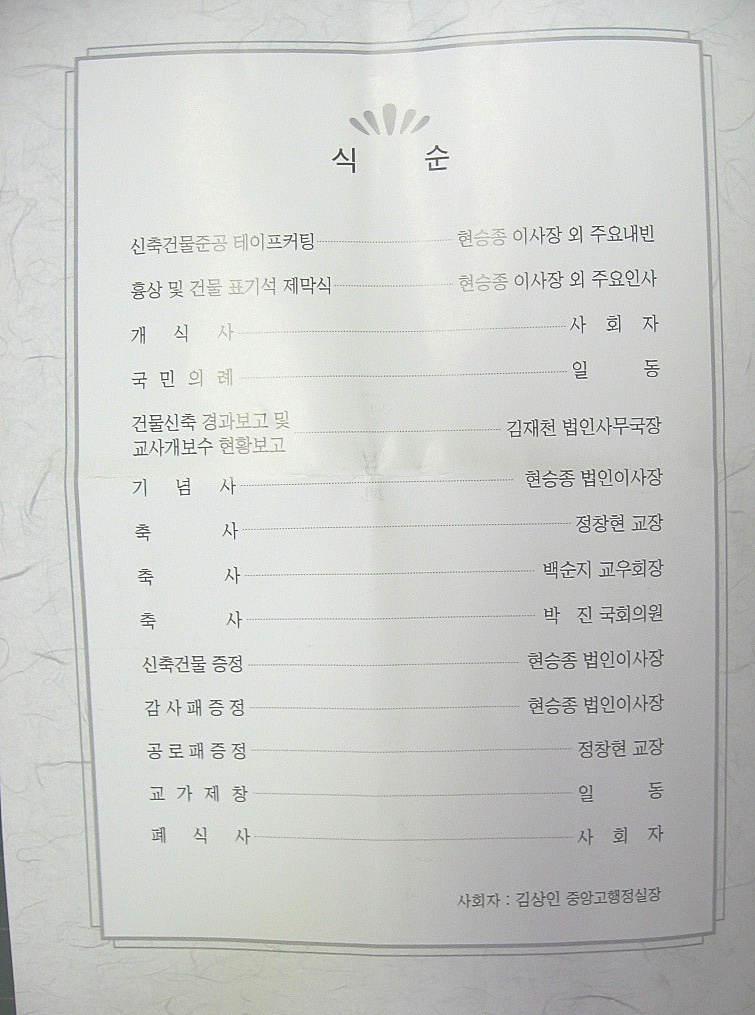 식 순
신축건물준공 테이프커팅 현승종 이사장 외 주요내빈
흉상 및 건물 표기석 제막식 현승종 이사장 외 주요인사
개 식 사 사 회 자
국 민 의 례 일 동
건물신축 경과보고 및
교사개보수 현황보고 김재천 법인사무국장
기 념 사 현승종 법인이사장
축 사 정창현 교장
축 사 백순지 교우회장
축 사 박 진 국회의원
신축건물 증정 현승종 법인이사장
감 사 패 증 정 현승종 법인이사장
공 로 패 증 정 정창현 교장
교 가 제 창 일 동
폐 식 사 사 회 자
사회자 : 김상인 중앙고행정실장